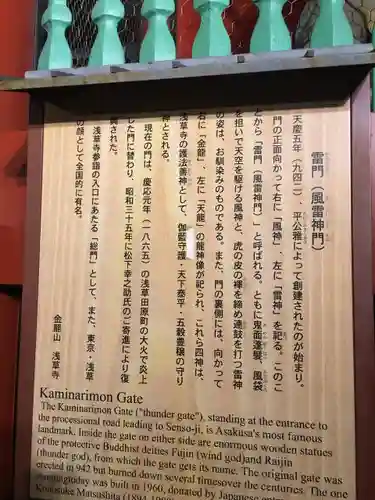 雷門（風雷神門）
天慶五年（九四二）、平公雅によって創建されたのが始まり。
門の正面向かって右に「風神」、左に「雷神」を祀る。このこ
とから「雷門（風雷神門）」と呼ばれる。ともに鬼面蓬髪、風袋
を担いで天空を駆ける風神と、虎の皮の褌を締め連鼓を打つ雷神
の姿は、お馴染みのものである。また、門の裏側には、向かって
右に「金龍」、左に「天龍」の龍神像が祀られ、これら四神は、
浅草寺の護法善神として、伽藍守護・天下泰平・五穀豊穣の守り
神とされる。
現在の門は、慶応元年（一八六五）の浅草田原町の大火で炎上
した門に替わり、昭和三十五年に松下幸之助氏のご寄進により復
興された。
浅草寺参詣の入口にあたる「総門」として、また、東京・浅草
の顔として全国的に有名。
金龍山 浅草寺
Kaminarimon Gate
The Kaminarimon Gate ("thunder gate"), standing at the entrance to
the processional road leading to Senso-ji, is Asakusa's most famous
landmark. Inside the gate on either side are enormous wooden statues
of the protective Buddhist deities Fujin (wind god)and Raijin
(thunder god), from which the gate gets its name. The original gate was
erected in 942 but burned down several timesover the centuries. The one
standingtoday was built in 1960, donated by Japanese
Konosuke Matsushita (1894-1989).